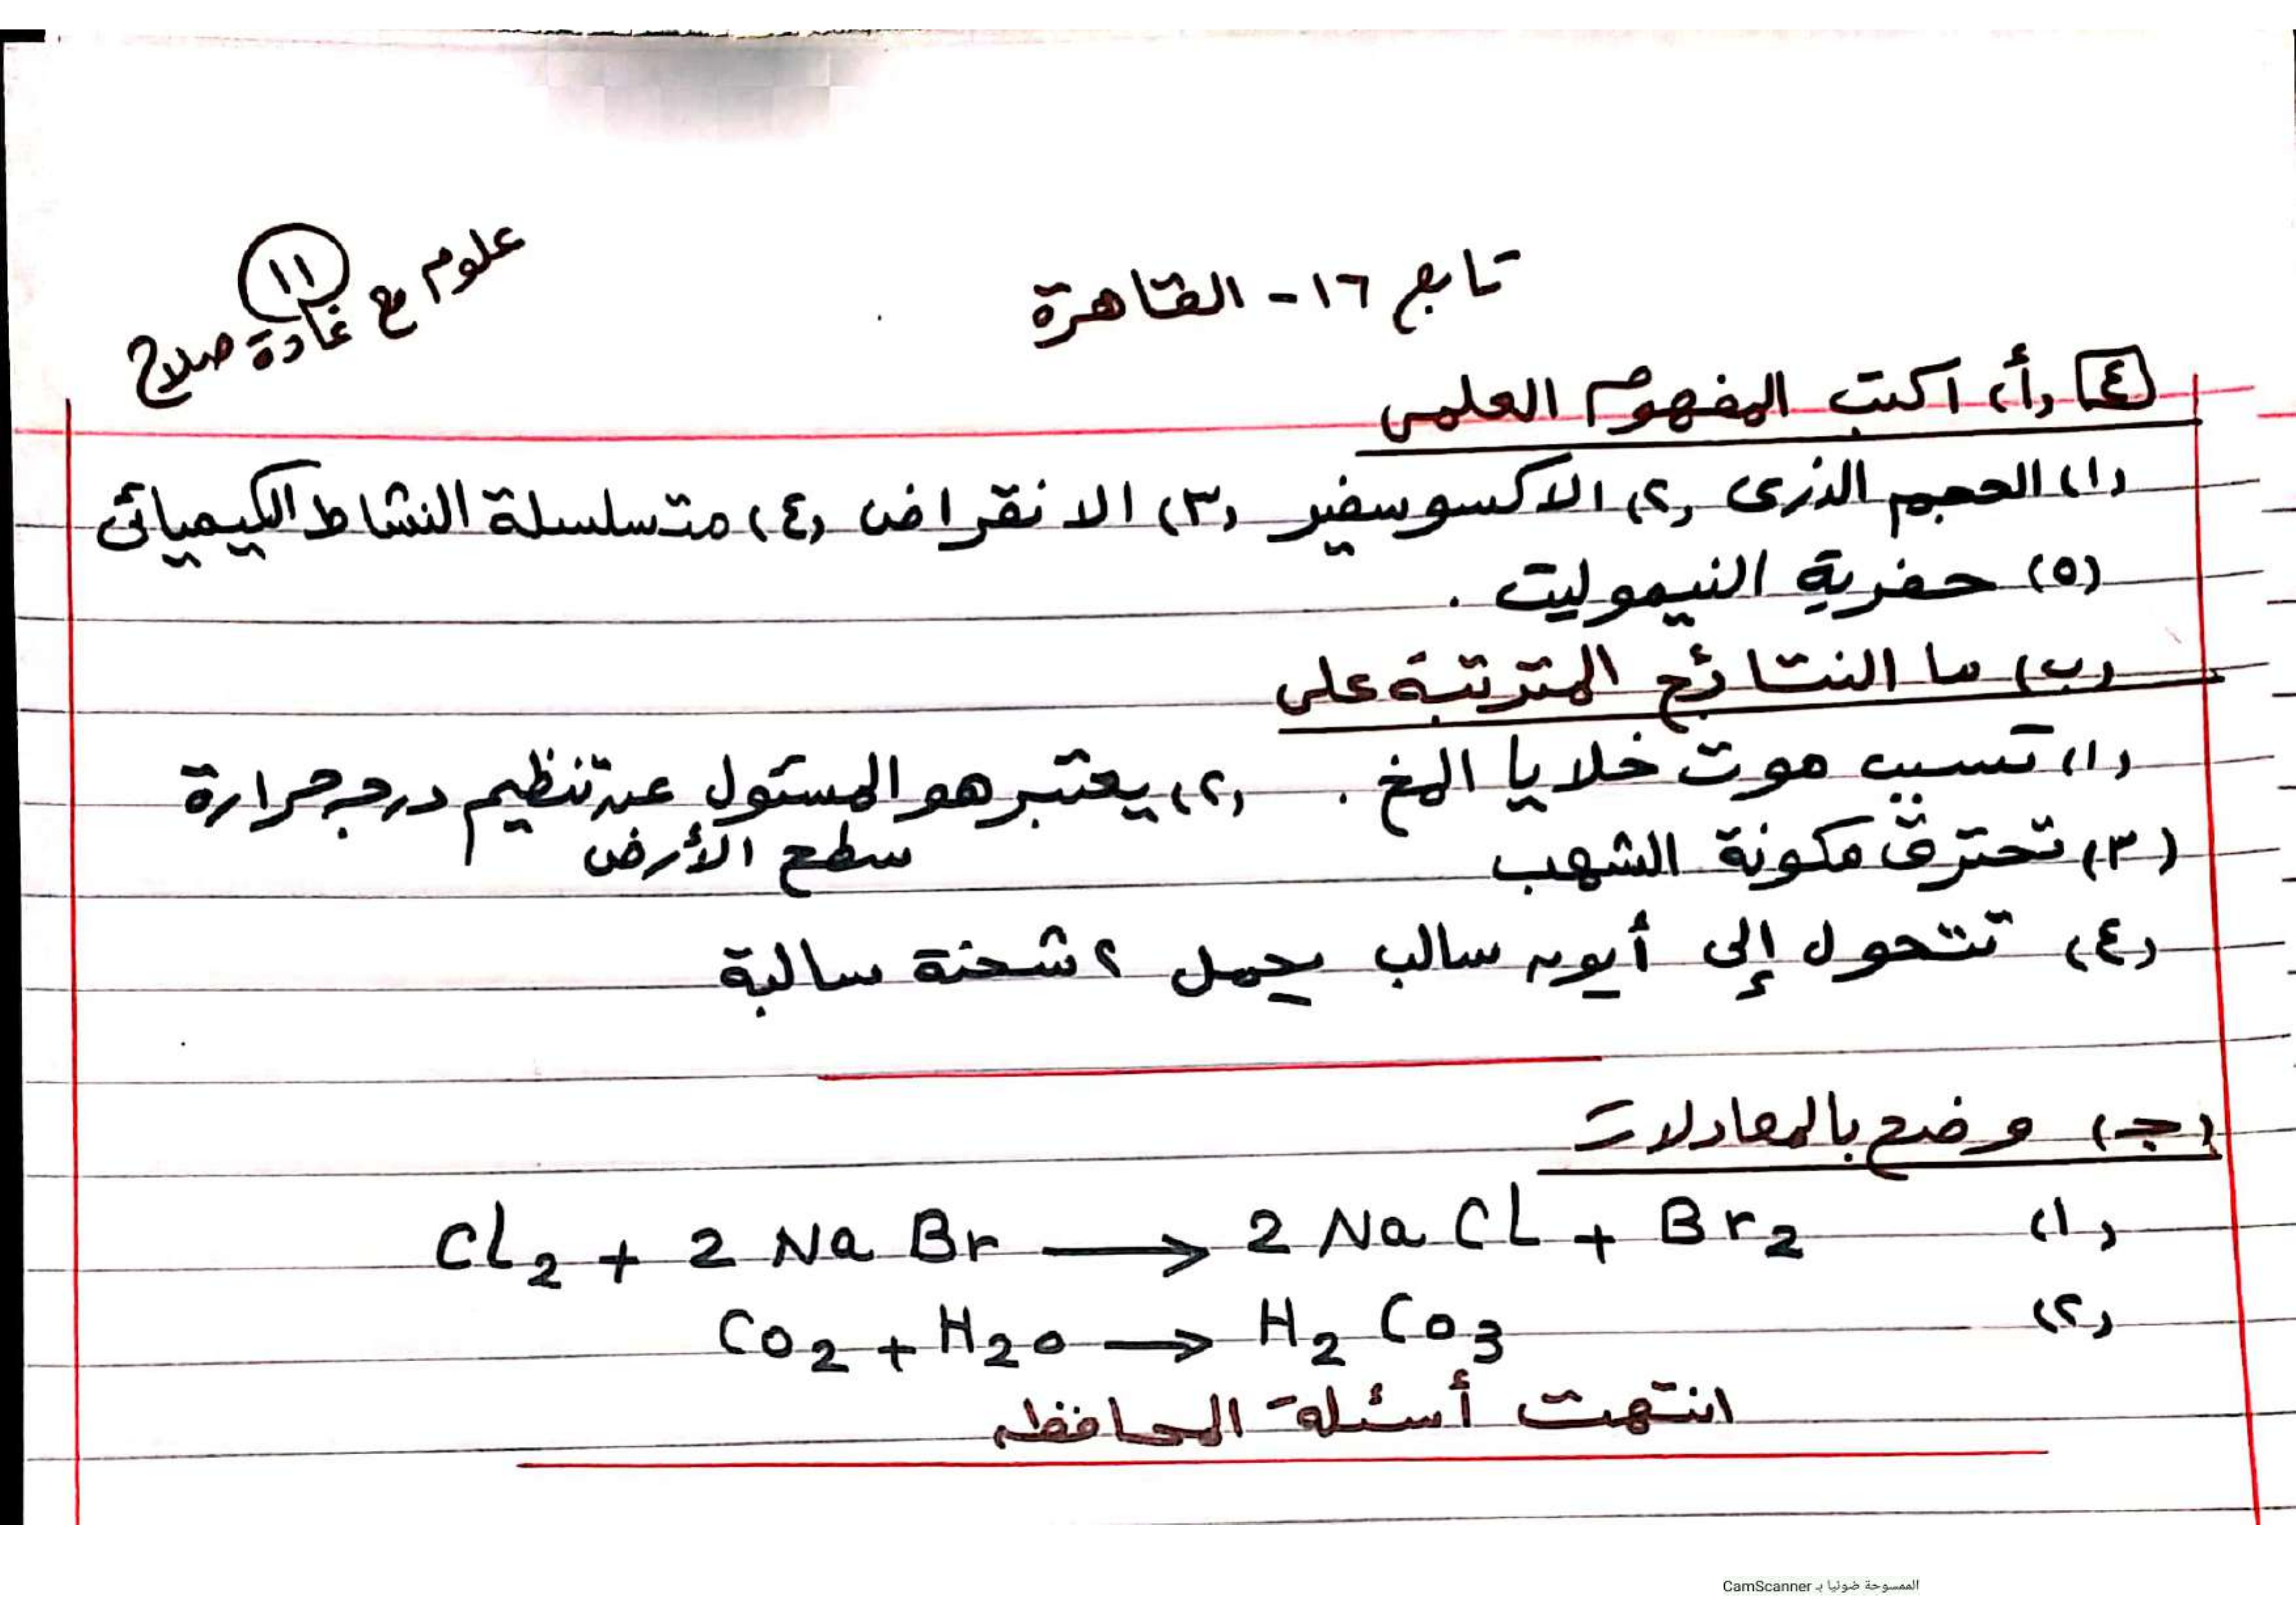 علوم مع غادة صلاح
١١
تابع ١٦ - القاهرة
٤ (أ) اكتب المفهوم العلمى
(١) الحجم الذرى (٢) الاكسوسفير (٣) الانقراض (٤) متسلسلة النشاط الكيميائى
(٥) حفرية النيموليت .
(ب) ما النتائج المترتبة على
(١) تسبب موت خلايا المخ . (٢) يعتبر هو المسئول عن تنظيم درجة حرارة
سطح الأرض
(٣) تحترق مكونة الشهب
(٤) تتحول إلى أيون سالب يحمل ٢ شحنة سالبة
(جـ) وضح بالمعادلات
(١) Cl₂ + 2 Na Br ⟶ 2 Na Cl + Br₂
(٢) Co₂ + H₂o ⟶ H₂ Co₃
انتهت أسئلة المحافظة
الممسوحة ضوئيا بـ CamScanner